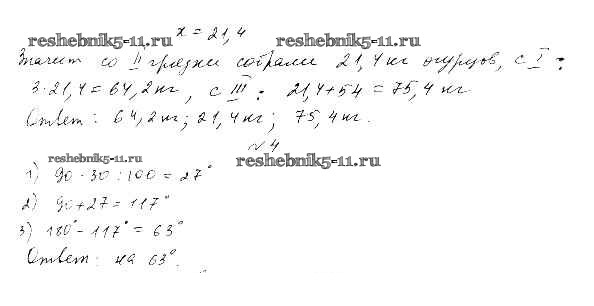 x = 21,4
reshebnik5-11.ru reshebnik5-11.ru
Значит со II грядки собрали 21,4 кг огурцов, с I:
3·21,4=64,2 кг, с III: 21,4+54=75,4 кг.
Ответ: 64,2 кг; 21,4 кг; 75,4 кг.
№4
reshebnik5-11.ru reshebnik5-11.ru
1) 90·30:100=27°
2) 90+27=117°
3) 180°-117°=63°
Ответ: на 63°.